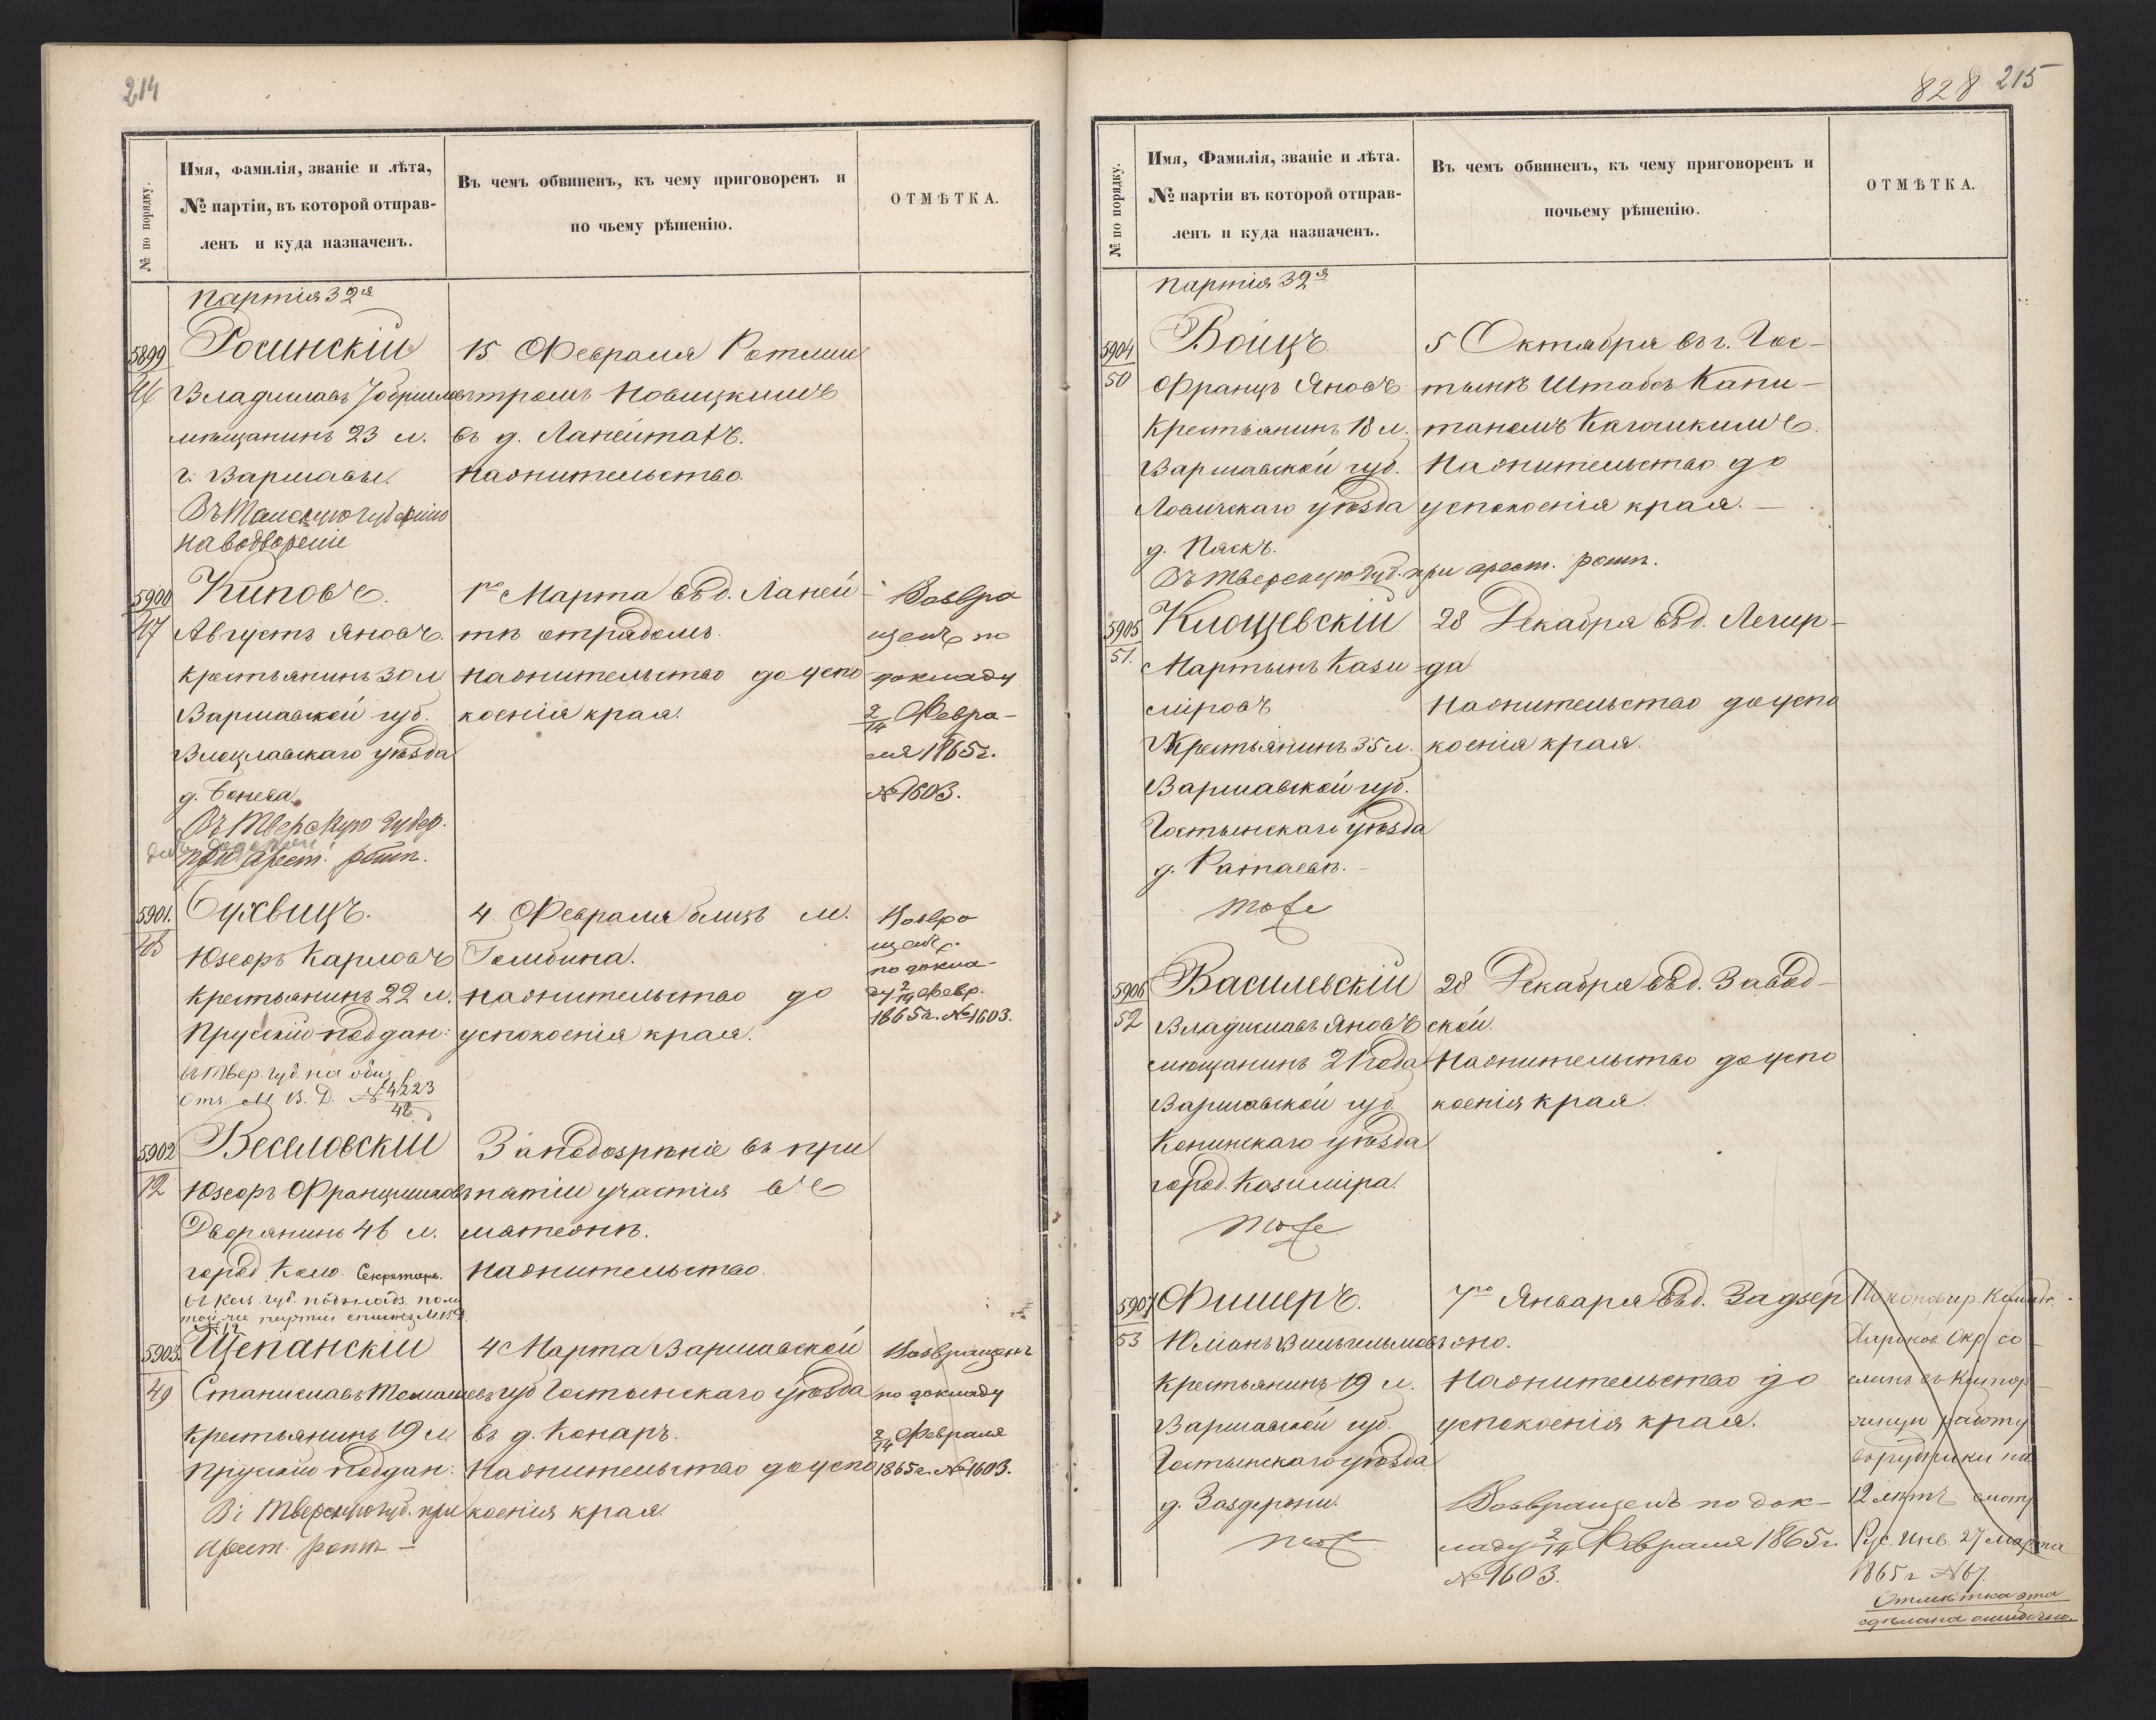 214
№ по порядку.
Имя, фамилія, званіе и лѣта,
№ партіи, въ которой отправ-
ленъ и куда назначенъ.
Въ чемъ обвиненъ, къ чему приговоренъ и
по чьему рѣшенію.
ОТМѢТКА.
Партія 32я
5899
46
Росинскій
Владиславъ
мѣщанинъ 23 л.
г. Варшавы.
Въ Томскую губернію
на водвореніе
15 Февраля Ротми
стромъ Новицкимъ
въ д. Ланентахъ.
на жительство.
5900
47
Киповъ.
Августъ Яновъ.
крестьянинъ 30 л
Варшавской губ.
Влоцлавскаго уѣзда
д. Бонева.
Въ Тверскую губер.
при арест. ротп.
1го Марта въ д. Ланей-
тѣ отрядомъ.
на жительство до успо
коенія края.
Возвра
щенъ по
докладу
2/14 Февра-
ля 1865 г.
№ 1603.
5901.
48
Бухвицъ.
Юзефъ Карловъ
крестьянинъ 22 л.
Прускій поддан:
въ Твер. губ. на
Отн. М. В. Д. № 4223
48
4 Февраля близъ м.
Гомбина.
на жительство до
успокоенія края.
Возвра
щенъ.
по докла-
ду 2/14 Февр.
1865 г. № 1603.
5902
12
Веселовскій
Юзефъ Францишковъ
Дворянинъ 46 л.
город Коло. Секретарь.
За подозрѣніе въ при
нятіи участія въ
мятежѣ.
на жительство.
5903.
49
Щепанскій
Станиславъ Томашевъ
крестьянинъ 19 л
Прускій поддан:
Въ Тверскую губ. при
Арест. ротп. -
4 Марта Варшавской
губ Гостынскаго уѣзда
въ д. Конаръ.
на жительство до успо
коенія края.
Возвращенъ
по докладу
2/14 Февраля
1865 г. № 1603.
828 215
№ по порядку.
Имя, Фамилія, званіе и лѣта.
№ партіи въ которой отправ-
ленъ и куда назначенъ.
Въ чемъ обвиненъ, къ чему приговоренъ и
почьему рѣшенію.
ОТМѢТКА.
Партія 32я
5904
50
Войцъ
Францъ Яновъ
Крестьянинъ 18 л.
Варшавской губ.
Ловичскаго уѣзда
д. Пяскъ.
Въ Тверскую губ. при арест. ротп.
5 Октября въ г. Гос-
тынѣ Штабсъ Капи-
таномъ
На жительство до
успокоенія края. -
5905
51.
Клощевскій
Мартынъ Кази-
міровъ
Крестьянинъ 35 л.
Варшавской губ.
Гостынскаго уѣзда
д. Ратаевѣ. -
тоже
28 Декабря въ д. Легир-
да
На жительство до успо
коенія края.
5906
52
Василевскій
Владиславъ Яновъ
мѣщанинъ 21 года
Варшавской губ.
Конинскаго уѣзда
город. Казиміра.
тоже
28 Декабря въ д. Завод-
ской.
На жительство до успо
коенія края.
5907
53
Фишеръ.
Юліанъ Вильгельмовъ
крестьянинъ 19 л.
Варшавской губ.
Гостынскаго уѣзда
д. Заздержни.
тоже
7го Января въ д. Задзер
жно.
На жительство до
успокоенія края.
Возвращенъ по док-
ладу 2/14 Февраля 1865 г.
№ 1603.
По конфир. Команд.
Харьков. Окр. со
сланъ въ Катор
жную работу
въ рудники на
12 лѣтъ смот
Рус. Инв. 27 Марта
1865 г № 67.
Отмѣтка эта
сдѣлана ошибочно.